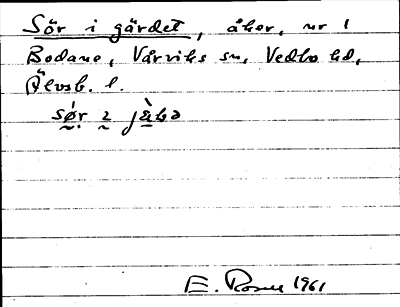 Sör i gärdet, åker, nr 1
Bodane, Vårviks sn, Vedbo hd,
Älvsb. l.
E. Rosell 1961